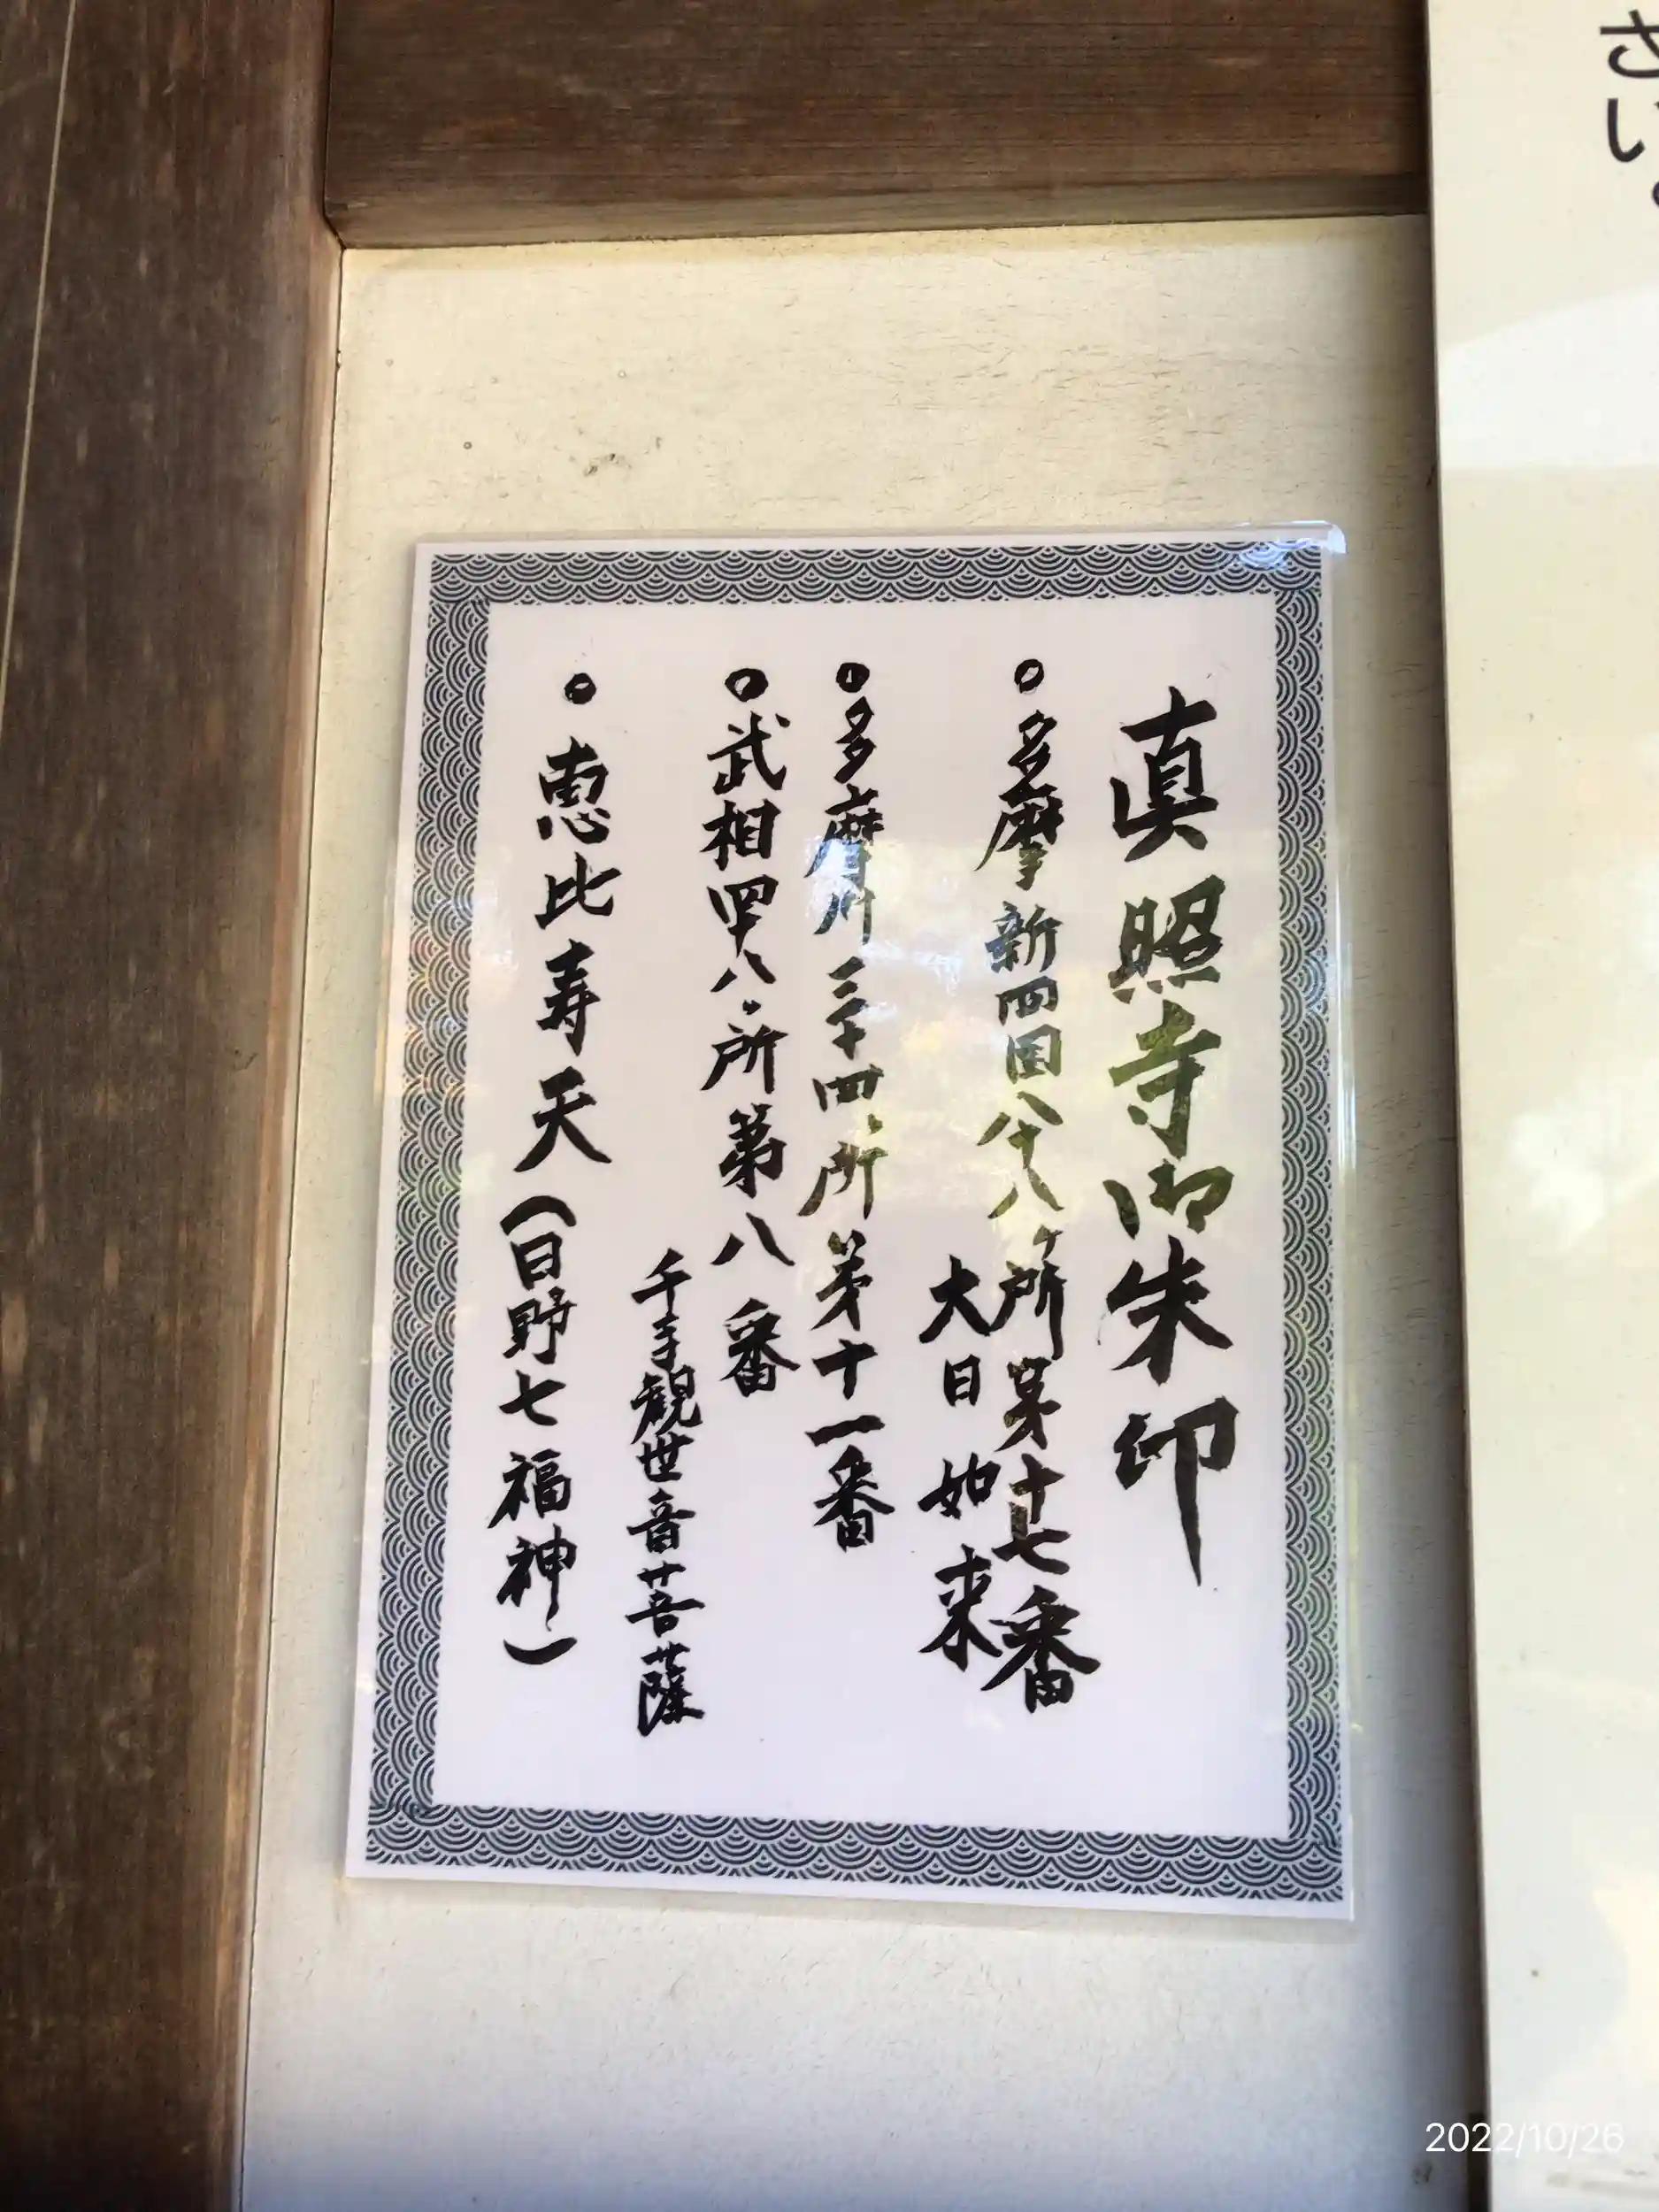 さい。
真照寺御朱印
○多摩新四国八十八ヶ所第十七番
大日如来
○多摩川三十四ヶ所第十一番
○武相四十八ヶ所第八番
千手観世音菩薩
○恵比寿天(日野七福神)
2022/10/26